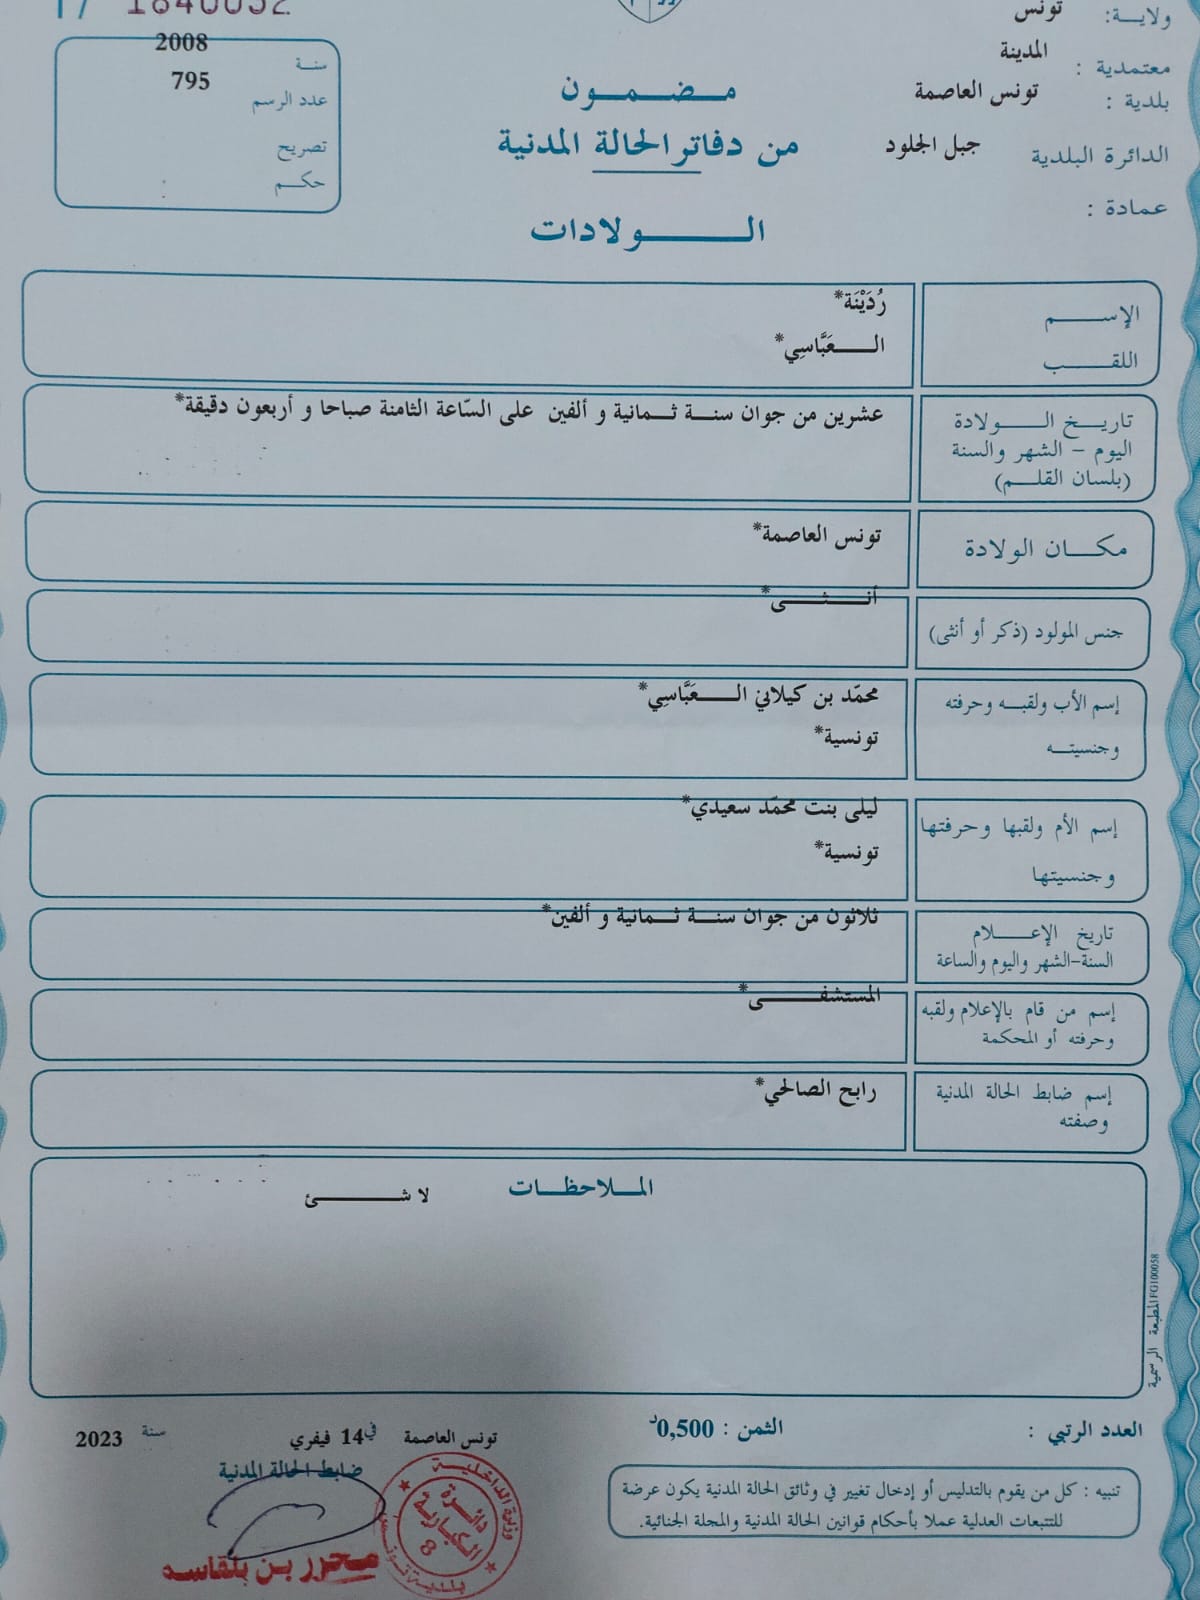 ولاية: تونس
معتمدية : المدينة
بلدية : تونس العاصمة
الدائرة البلدية جبل الجلود
عمادة :
مضمون
من دفاتر الحالة المدنية
الولادات
سنة 2008
عدد الرسم 795
تصريح
حكم :
الإسم رُدَيْنَة*
اللقب العَبَّاسِي*
تاريخ الولادة عشرين من جوان سنة ثمانية و ألفين على السّاعة الثامنة صباحا و أربعون دقيقة*
اليوم - الشهر والسنة
(بلسان القلم)
مكان الولادة تونس العاصمة*
جنس المولود (ذكر أو أنثى) أنثى*
إسم الأب ولقبه وحرفته محمّد بن كيلاني العَبَّاسِي*
وجنسيته تونسية*
إسم الأم ولقبها وحرفتها ليلى بنت محمّد سعيدي*
وجنسيتها تونسية*
تاريخ الإعلام ثلاثون من جوان سنة ثمانية و ألفين*
السنة-الشهر واليوم والساعة
إسم من قام بالإعلام ولقبه المستشفى*
وحرفته أو المحكمة
إسم ضابط الحالة المدنية رابح الصالحي*
وصفته
الملاحظات
لا شئ
المطبعة الرسمية FG100058
العدد الرتبي :
الثمن : 0,500د
تونس العاصمة في 14 فيفري سنة 2023
ضابط الحالة المدنية
تنبيه : كل من يقوم بالتدليس أو إدخال تغيير في وثائق الحالة المدنية يكون عرضة
للتتبعات العدلية عملا بأحكام قوانين الحالة المدنية والمجلة الجنائية.
وزارة الداخلية
دائرة
8
محرر بن بلقاسم